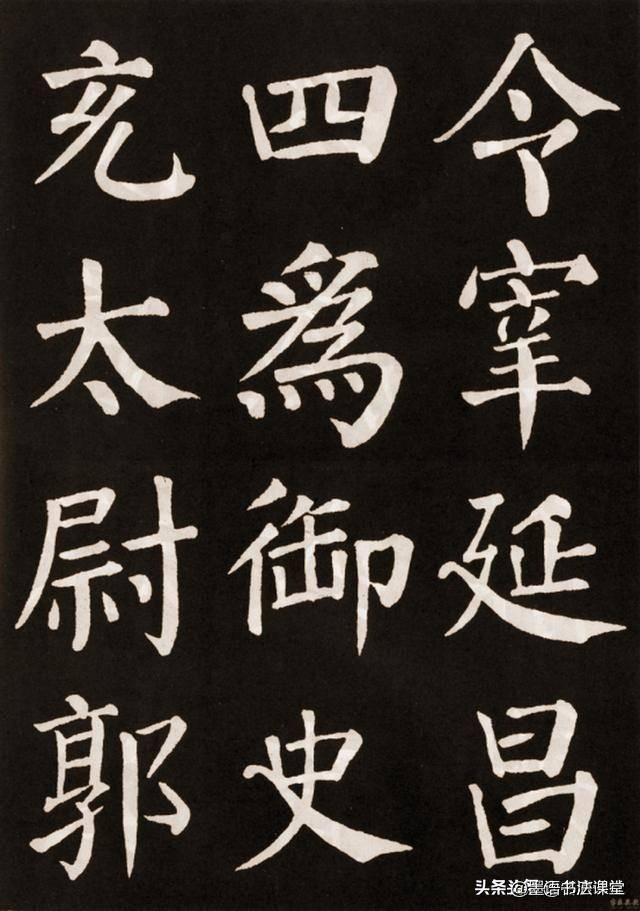 令宰延昌
四爲御史
充太尉郭
书法课堂